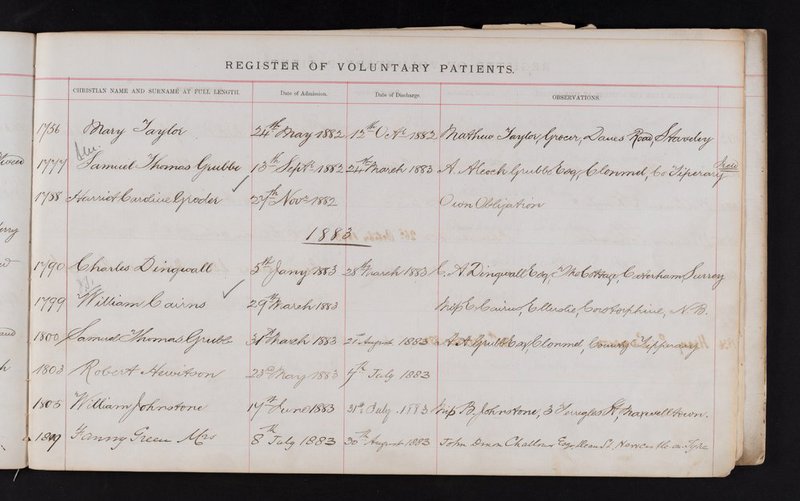 REGISTER OF VOLUNTARY PATIENTS.
CHRISTIAN NAME AND SURNAME AT FULL LENGTH. Date of Admission. Date of Discharge. OBSERVATIONS.
1756 Mary Taylor 24th May 1882 12th Octr 1882 Mathew Taylor, Grocer, Road, Staveley
1777 Samuel Thomas Grubbe 13th Septr 1882 24th March 1883 A. Alcock Grubbe Esq, Clonmel, Co Tiperary
1788 Harriet Caroline Groder 27th Novr 1882 Own Obligation
1883
1790 Charles Dingwall 5th Jany 1883 28th March 1883 C. A Dingwall Esq, The Cottage, Caterham, Surrey
1799 William Cairns 29th March 1883 Miss C. Cairns, Ellerslie, Corstorphine, N.B.
1800 Samuel Thomas Grubb 31st March 1883 2nd August 1883 A A Grubb Esq, Clonmel, County Tipperary
1803 Robert Hewitson 23d May 1883 7th July 1883
1805 William Johnstone 14th June 1883 31st July 1883 Miss B Johnstone, 3 St, Maxwelltown.
1807 Fanny Green Mrs 8th July 1883 30th August 1883 John Challoner Esq, Dean St, Newcastle on Tyne